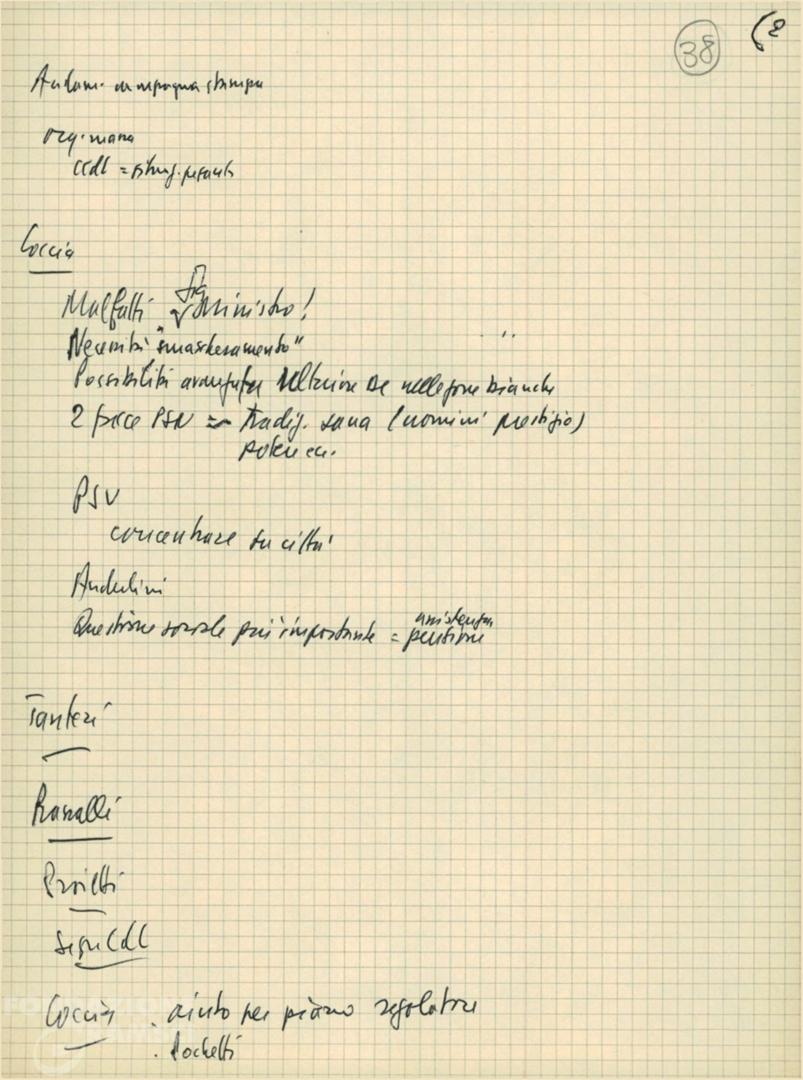 38
(2
Andam. campagna stampa
org. mana
CCdL =
Coccia
Malfatti sig Ministro!
Necessità "smascheramento"
Possibilità avanzata ultimi DC nelle zone bianche
2 facce PSU = tradiz. sana (uomini prestigio)
potere ecc.
PSU
concentrare su città
Anderlini
Questione sociale più importante = assistenza
pensione
Tanteri
Ranalli
Proietti
Segr CdL
Coccia . aiuto per piano regolatore
. Pochetti